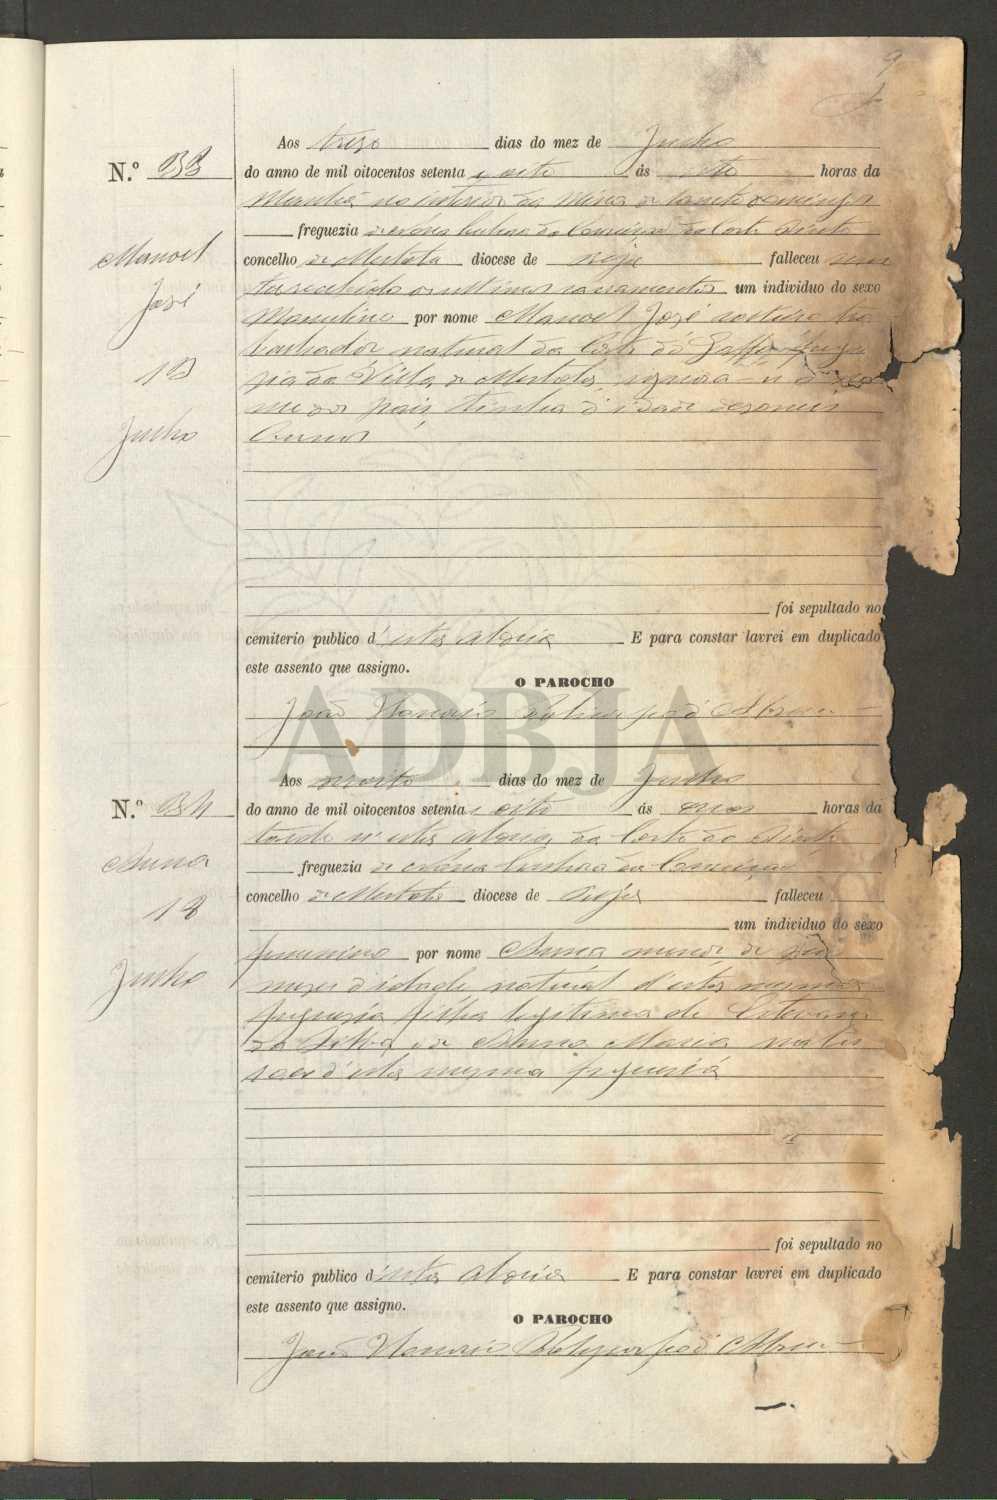 Aos treze dias do mez de Junho
N.º 33
do anno de mil oitocentos setenta e oito ás oito horas da
Manhã no interior da Mina de Santo Domingos
freguezia de Nossa Senhora da Conceição da Corte do Pinto
Manoel
concelho de Mertola diocese de Beja falleceu
os ultimos sacramentos um individuo do sexo
José
Masculino por nome Manoel José solteiro tra
balhador natural da Corte do
13
da Villa de Mertola, ignora-se o no
me dos pais, tinha d'idade
Junho
annos
foi sepultado no
cemiterio publico d'esta aldeia E para constar lavrei em duplicado
este assento que assigno.
O PAROCHO
ADBJA
João
Aos dezoito dias do mez de Junho
N.º 34
do anno de mil oitocentos setenta e oito ás horas da
tarde n'esta aldeia da Corte do Pinto
Anna
freguezia de Nossa Senhora da Conceição
concelho de Mertola diocese de Beja falleceu
18
um individuo do sexo
femenino por nome Anna menor de
Junho
mezes d'idade natural d'esta mesma
freguezia filha legitima de Estevam
da Silva e de Anna Maria natu
raes d'esta mesma freguezia
foi sepultado no
cemiterio publico d'esta aldeia E para constar lavrei em duplicado
este assento que assigno.
O PAROCHO
João